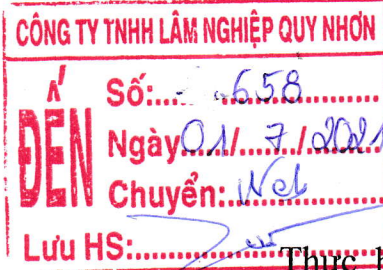 CÔNG TY TNHH LÂM NGHIỆP QUY NHƠN
ĐẾN
Số: 658
Ngày 01/7/2021
Chuyển: Web
Lưu HS:
Thực